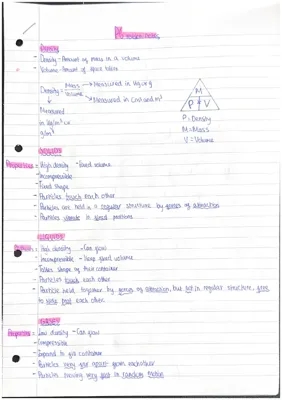 P1 revision notes
Density
- Density - Amount of mass in a volume
- Volume - Amount of space taken
Density = Mass → Measured in kg or g
Volume → Measured in cm³ and m³
↓
Measured
in kg/m³ or
g/cm³
M
P V
P = Density
M = Mass
V = Volume
SOLIDS
Properties: - High density - Fixed volume
- Incompressible
- Fixed shape
- Particles touch each other
- Particles are held in a regular structure by forces of attraction
- Particles vibrate in fixed positions
LIQUIDS
- High density - Can flow
- Incompressible - Have fixed volume
- Takes shape of their container
- Particles touch each other
- Particle held together by forces of attraction, but not in regular structure, free
to move past each other.
GASES
Properties: - Low density - Can flow
- Compressible
- Expand to fill container
- Particles very far apart from each other
- Particles moving very fast in random motion